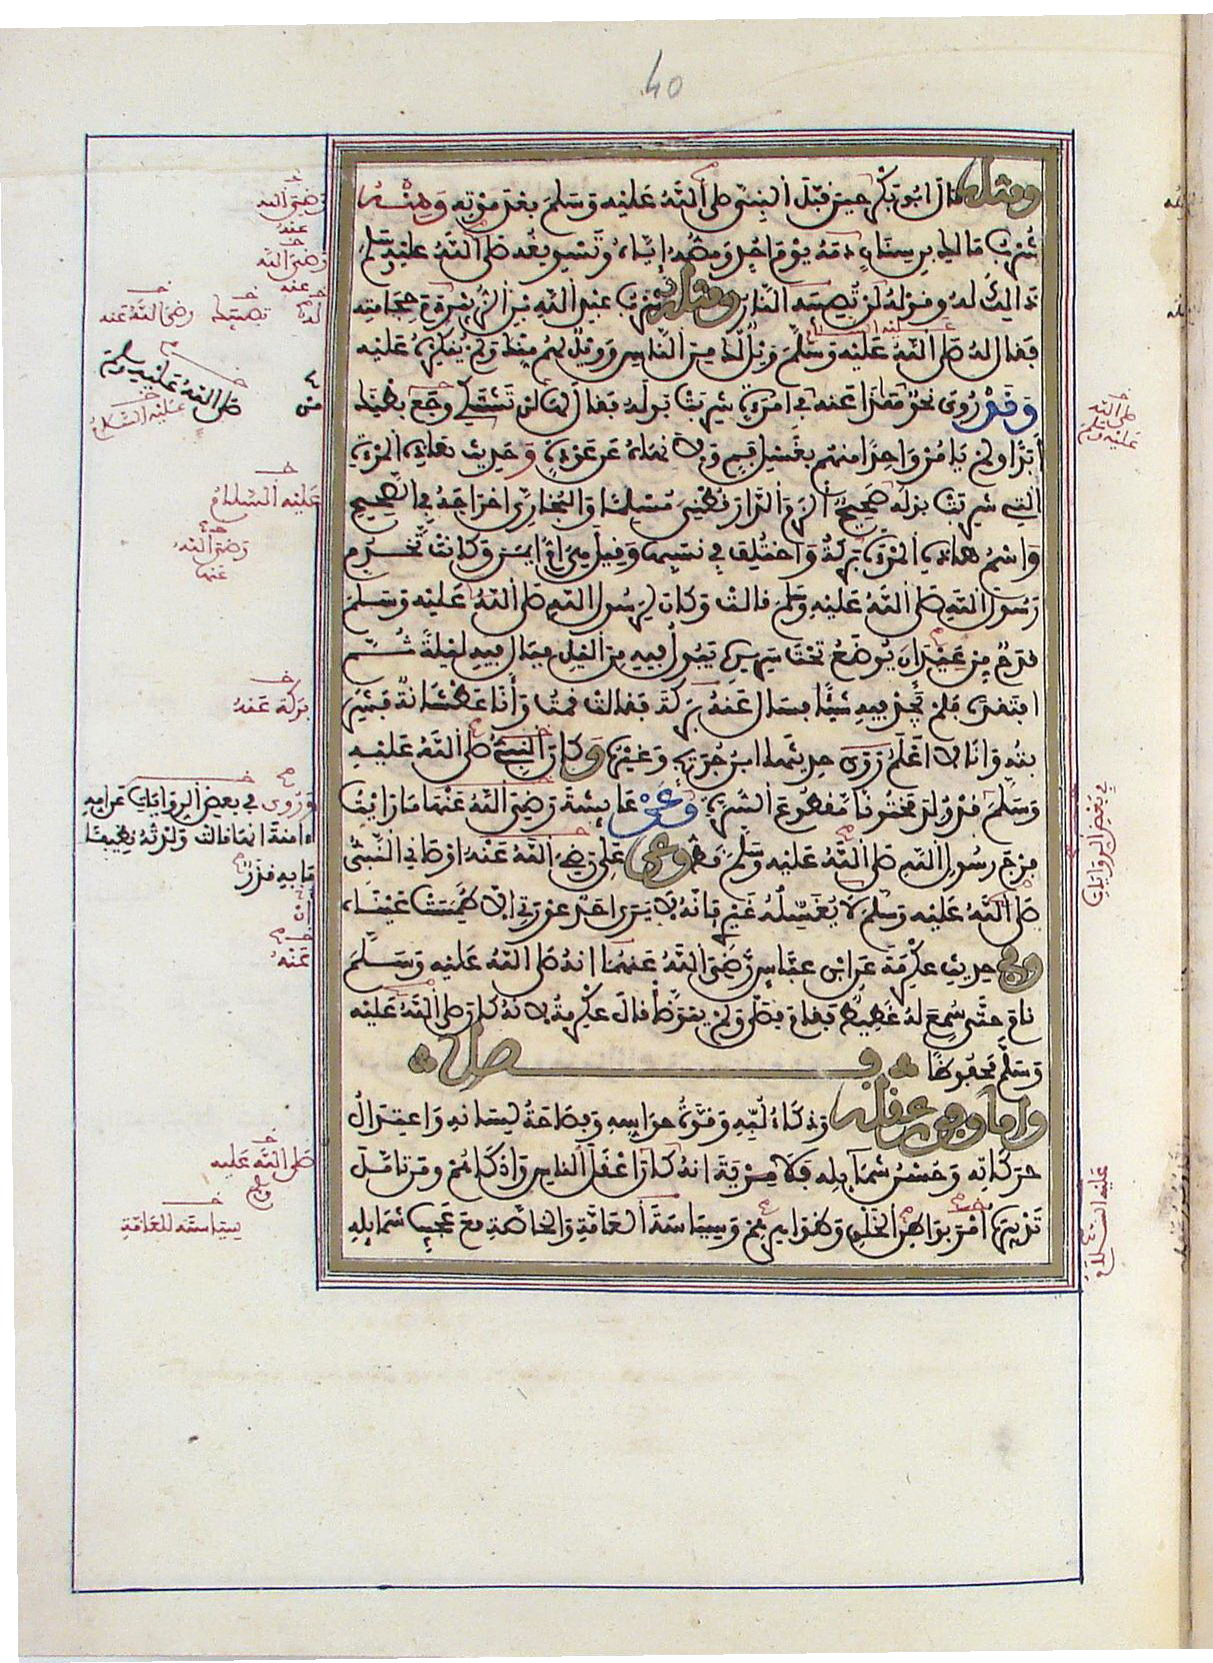 40
ومثله قال ابو بكر حين قبل النبي صلى الله عليه وسلم بعد موته ومنه
شرب مالك بن سنان دمه يوم احد ومصه اياه وتسويغه صلى الله عليه وسلم
ذالك له وقوله لن تصيبه النار ومثله شرب عبد الله بن الزبير دم حجامته
فقال له صلى الله عليه وسلم ويل لك من الناس وويل لهم منك ولم ينكر عليه
وقد روي نحو من هذا عنه في امرأة شربت بوله فقال لها لن تشتكي وجع بطنك
أبدا ولم يامر واحدا منهم بغسل فم ولا نهاه عن عودة وحديث هاذه المرأة
التي شربت بوله صحيح الزم الدارقطني مسلما والبخاري اخراجه في الصحيح
واسم هاذه المرأة بركة واختلف في نسبها وقيل هي ام ايمن وكانت تخدم
رسول الله صلى الله عليه وسلم قالت وكان لرسول الله صلى الله عليه وسلم
قدح من عيدان يوضع تحت سريره يبول فيه من الليل فبال فيه ليلة ثم
افتقده فلم يجد فيه شيئا فسال عنه بركة فقالت قمت وأنا عطشانة فشربته
وانا لا اعلم روى حديثها ابن جريج وغيره وكان النبي صلى الله عليه
وسلم قد ولد مختونا مقطوع السرة وعن عايشة رضي الله عنها ما رايت
فرج رسول الله صلى الله عليه وسلم قط وعن علي رضي الله عنه اوصاني النبي
صلى الله عليه وسلم لا يغسله غيري فانه لا يرى احد عورتي الا طمست عيناه
وفي حديث عكرمة عن ابن عباس رضي الله عنهما انه صلى الله عليه وسلم
نام حتى سمع له غطيط فقام فصلى ولم يتوضأ قال عكرمة لانه كان صلى الله عليه
وسلم محفوظا فصل
واما وفور عقله وذكاء لبه وقوة حواسه وفصاحة لسانه واعتدال
حركاته وحسن شمايله فلا مرية انه كان اعقل الناس واذكاهم ومن تامل
تدبيره امر بواطن الخلق وظواهرهم وسياسة العامة والخاصة مع عجيب شمايله
رضي الله
عنه
رضي الله
عنه
له
تصيبك
رضي الله عنه
من
صلى الله عليه وسلم
عليه السلام
عليه السلام
رضي الله
عنها
بركة عنه
وروي في بعض الروايات عن امه
ءامنة انها قالت ولدته نظيفا
ما به قذر
ان
عنه
صلى الله عليه
وسلم
سياسته للعامة
صلى الله
عليه وسلم
في بعض الروايات
عليه السلام